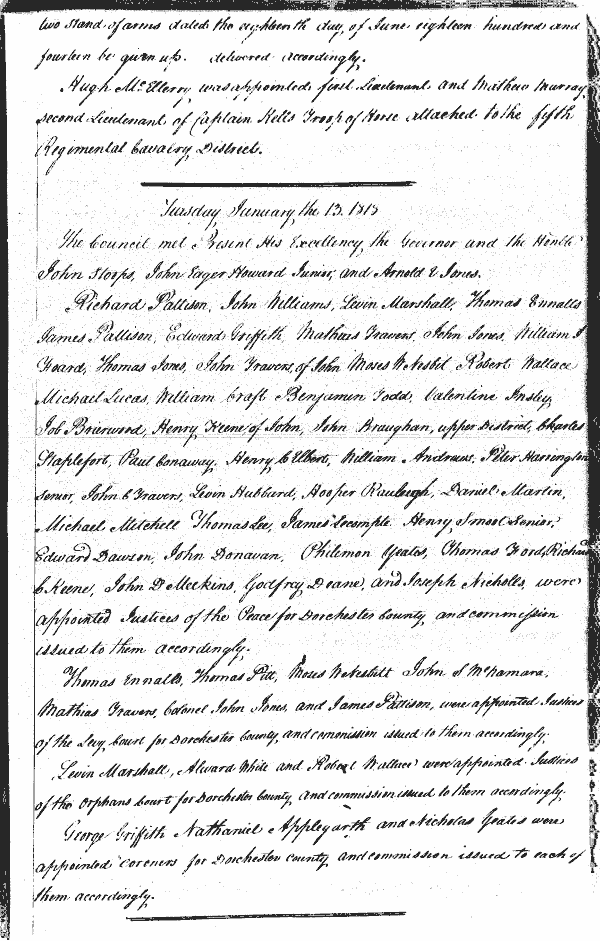 two Stand of arms dated the eighteenth day, of June eighteen hundred and
fourteen be given up. delivered accordingly.
Hugh McElderry, was appointed first Lieutenant and Mathew Murray,
second Lieutenant of Captain Kells Troop of Horse attached to the fifth
Regimental Cavalry District.
Tuesday, January, the 13. 1815
The Council met Present His Excellency, the Governor and the Honble
John Stoops, John Eager Howard Junior, and Arnold E Jones.
Richard Pattison, John Williams, Levin Marshall, Thomas Ennalls
James Pattison, Edward Griffith, Mathias Travers, John Jones, William J
Hoard, Thomas Jones, John Travers, of John Moses W Nesbit, Robert Wallace
Michael Lucas, William Craft Benjamin Todd, Valentine Insley,
Job Briarwood, Henry, Keene of John, John Braughan, upper District, Charles
Staplefort, Paul Conaway, Henry, C Elbert, William Andrews, Peter Harrington
senior, John C Travers, Levin Hubbard, Hooper Rawleigh, Daniel Martin,
Michael Mitchell Thomas Lee, James Lecompte Henry, Smoot Senior,
Edward Dawson, John Donavan, Philemon Yeates, Thomas Ford, Richard
C Keene, John D Meekins, Godfrey, Deane, and Joseph Nicholls, were
appointed Justices of the Peace for Dorchester County, and commission
issued to them accordingly.
Thomas Ennalls, Thomas Pitt, Moses W Nesbitt John S McNamara,
Mathias Travers, Colonel John Jones, and James Pattison, were appointed Justices
of the Levy, Court for Dorchester County, and commission issued to them accordingly.
Levin Marshall, Alward White and Robert Wallace were appointed Justices
of the Orphans Court for Dorchester County, and commission issued to them accordingly.
George Griffith Nathaniel Applegarth and Nicholas Yeates were
appointed coroners for Dorchester County and commission issued to each of
them accordingly.